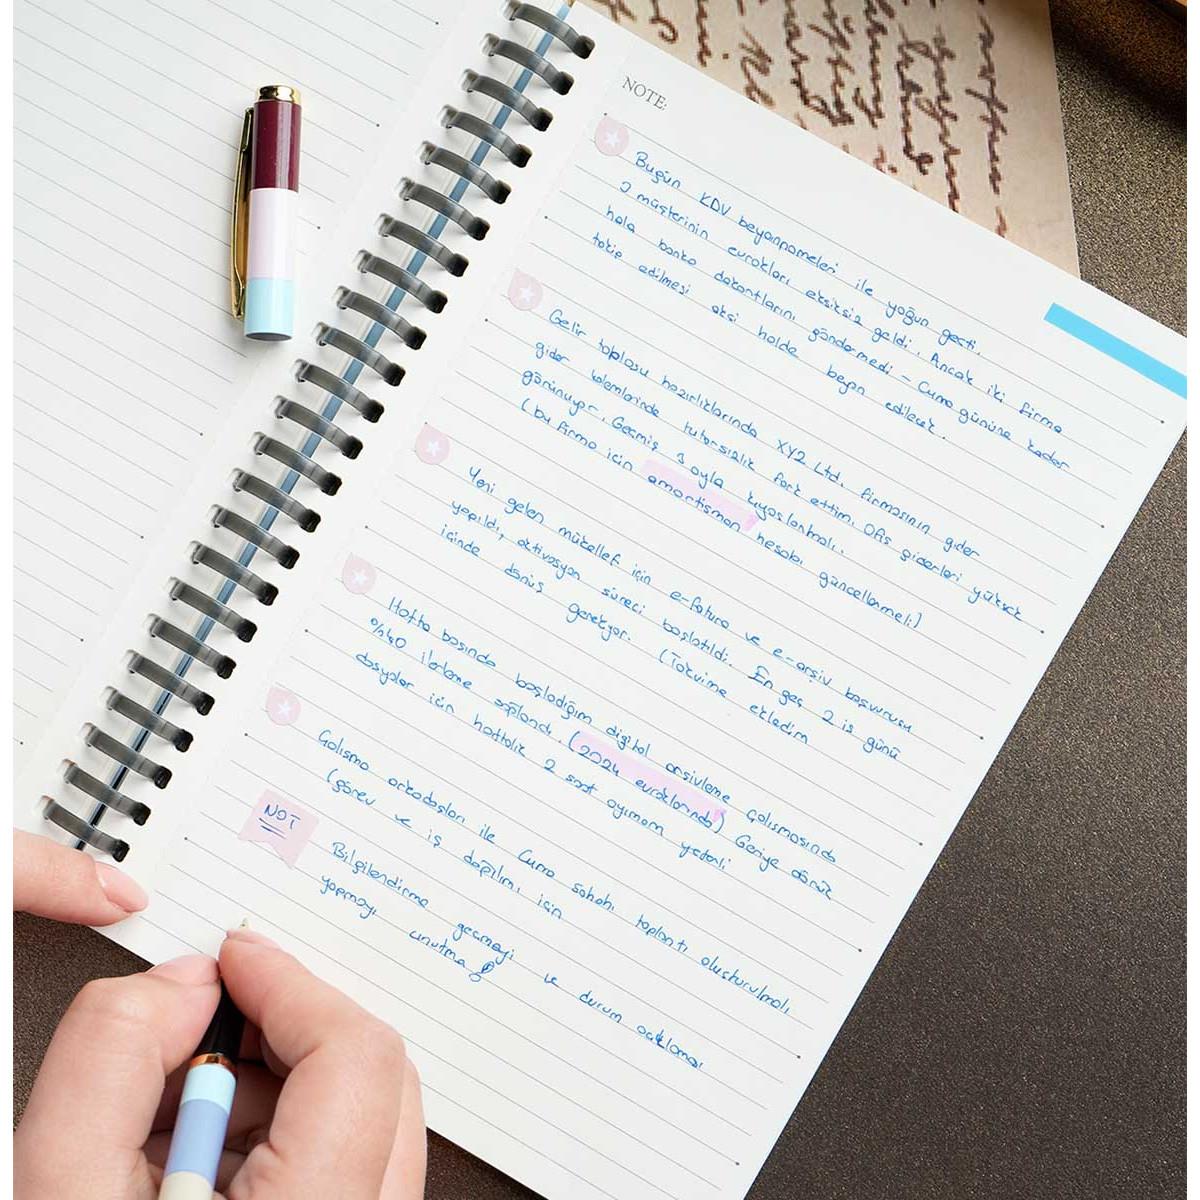 NOTE:
Bugün KDV beyannameleri ile yoğun geçti.
3 müşterinin evrakları eksiksiz geldi. Ancak iki firma
hala banka dekontlarını göndermedi – Cuma gününe kadar
takip edilmesi aksi halde beyan edilecek.
Gelir tablosu hazırlıklarında XYZ Ltd. firmasının gider
gider kalemlerinde tutarsızlık fark ettim. Ofis giderleri yüksek
görünüyor. Geçmiş 3 ayla kıyaslanmalı.
(bu firma için amortisman hesabı güncellenmeli)
Yeni gelen mükellef için e-fatura ve e-arşiv başvurusu
yapıldı, aktivasyon süreci başlatıldı. En geç 2 iş günü
içinde dönüş gerekiyor. (Takvime ekledim
Hafta başında başladığım digital arşivleme çalışmasında
%40 ilerleme sağlandı. (2024 evraklarında) Geriye dönük
dosyalar için haftalık 2 saat ayırmam yeterli
Çalışma arkadaşları ile Cuma sabahı toplantı oluşturulmalı
(görev ve iş dağılımı için
NOT
Bilgilendirme geçmeyi ve durum açıklaması
yapmayı unutma!